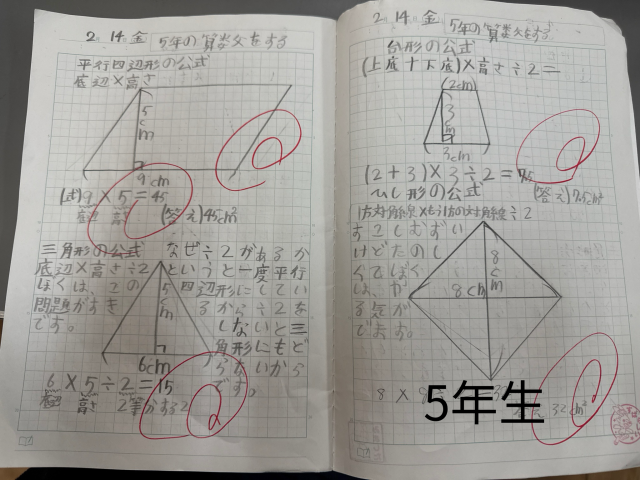 2 14 金 5年の算数文をする
平行四辺形の公式
底辺×高さ
5cm
9cm
(式)9×5=45
底辺 高さ (答え)45cm²
三角形の公式
底辺×高さ÷2
ぼくは、この
問題がすき
です。
なぜ÷2があるか
というと一度平行
四辺形にしてい
るから÷2を
しないと三
角形にもど
らないから
です。
5cm
6cm
6×5÷2=15
底辺 高さ
2 14 金 5年の算数文をする
台形の公式
(上底+下底)×高さ÷2=
(2cm)
3cm
3cm
(2+3)×3÷2=7.5
ひし形の公式 (答え)7.5cm²
1方対角線×もう1方の対角線÷2
すこしむずい
けどたのし
くてぼく
は、や
る気が
でます。
8cm
8cm
8×
32cm²
5年生